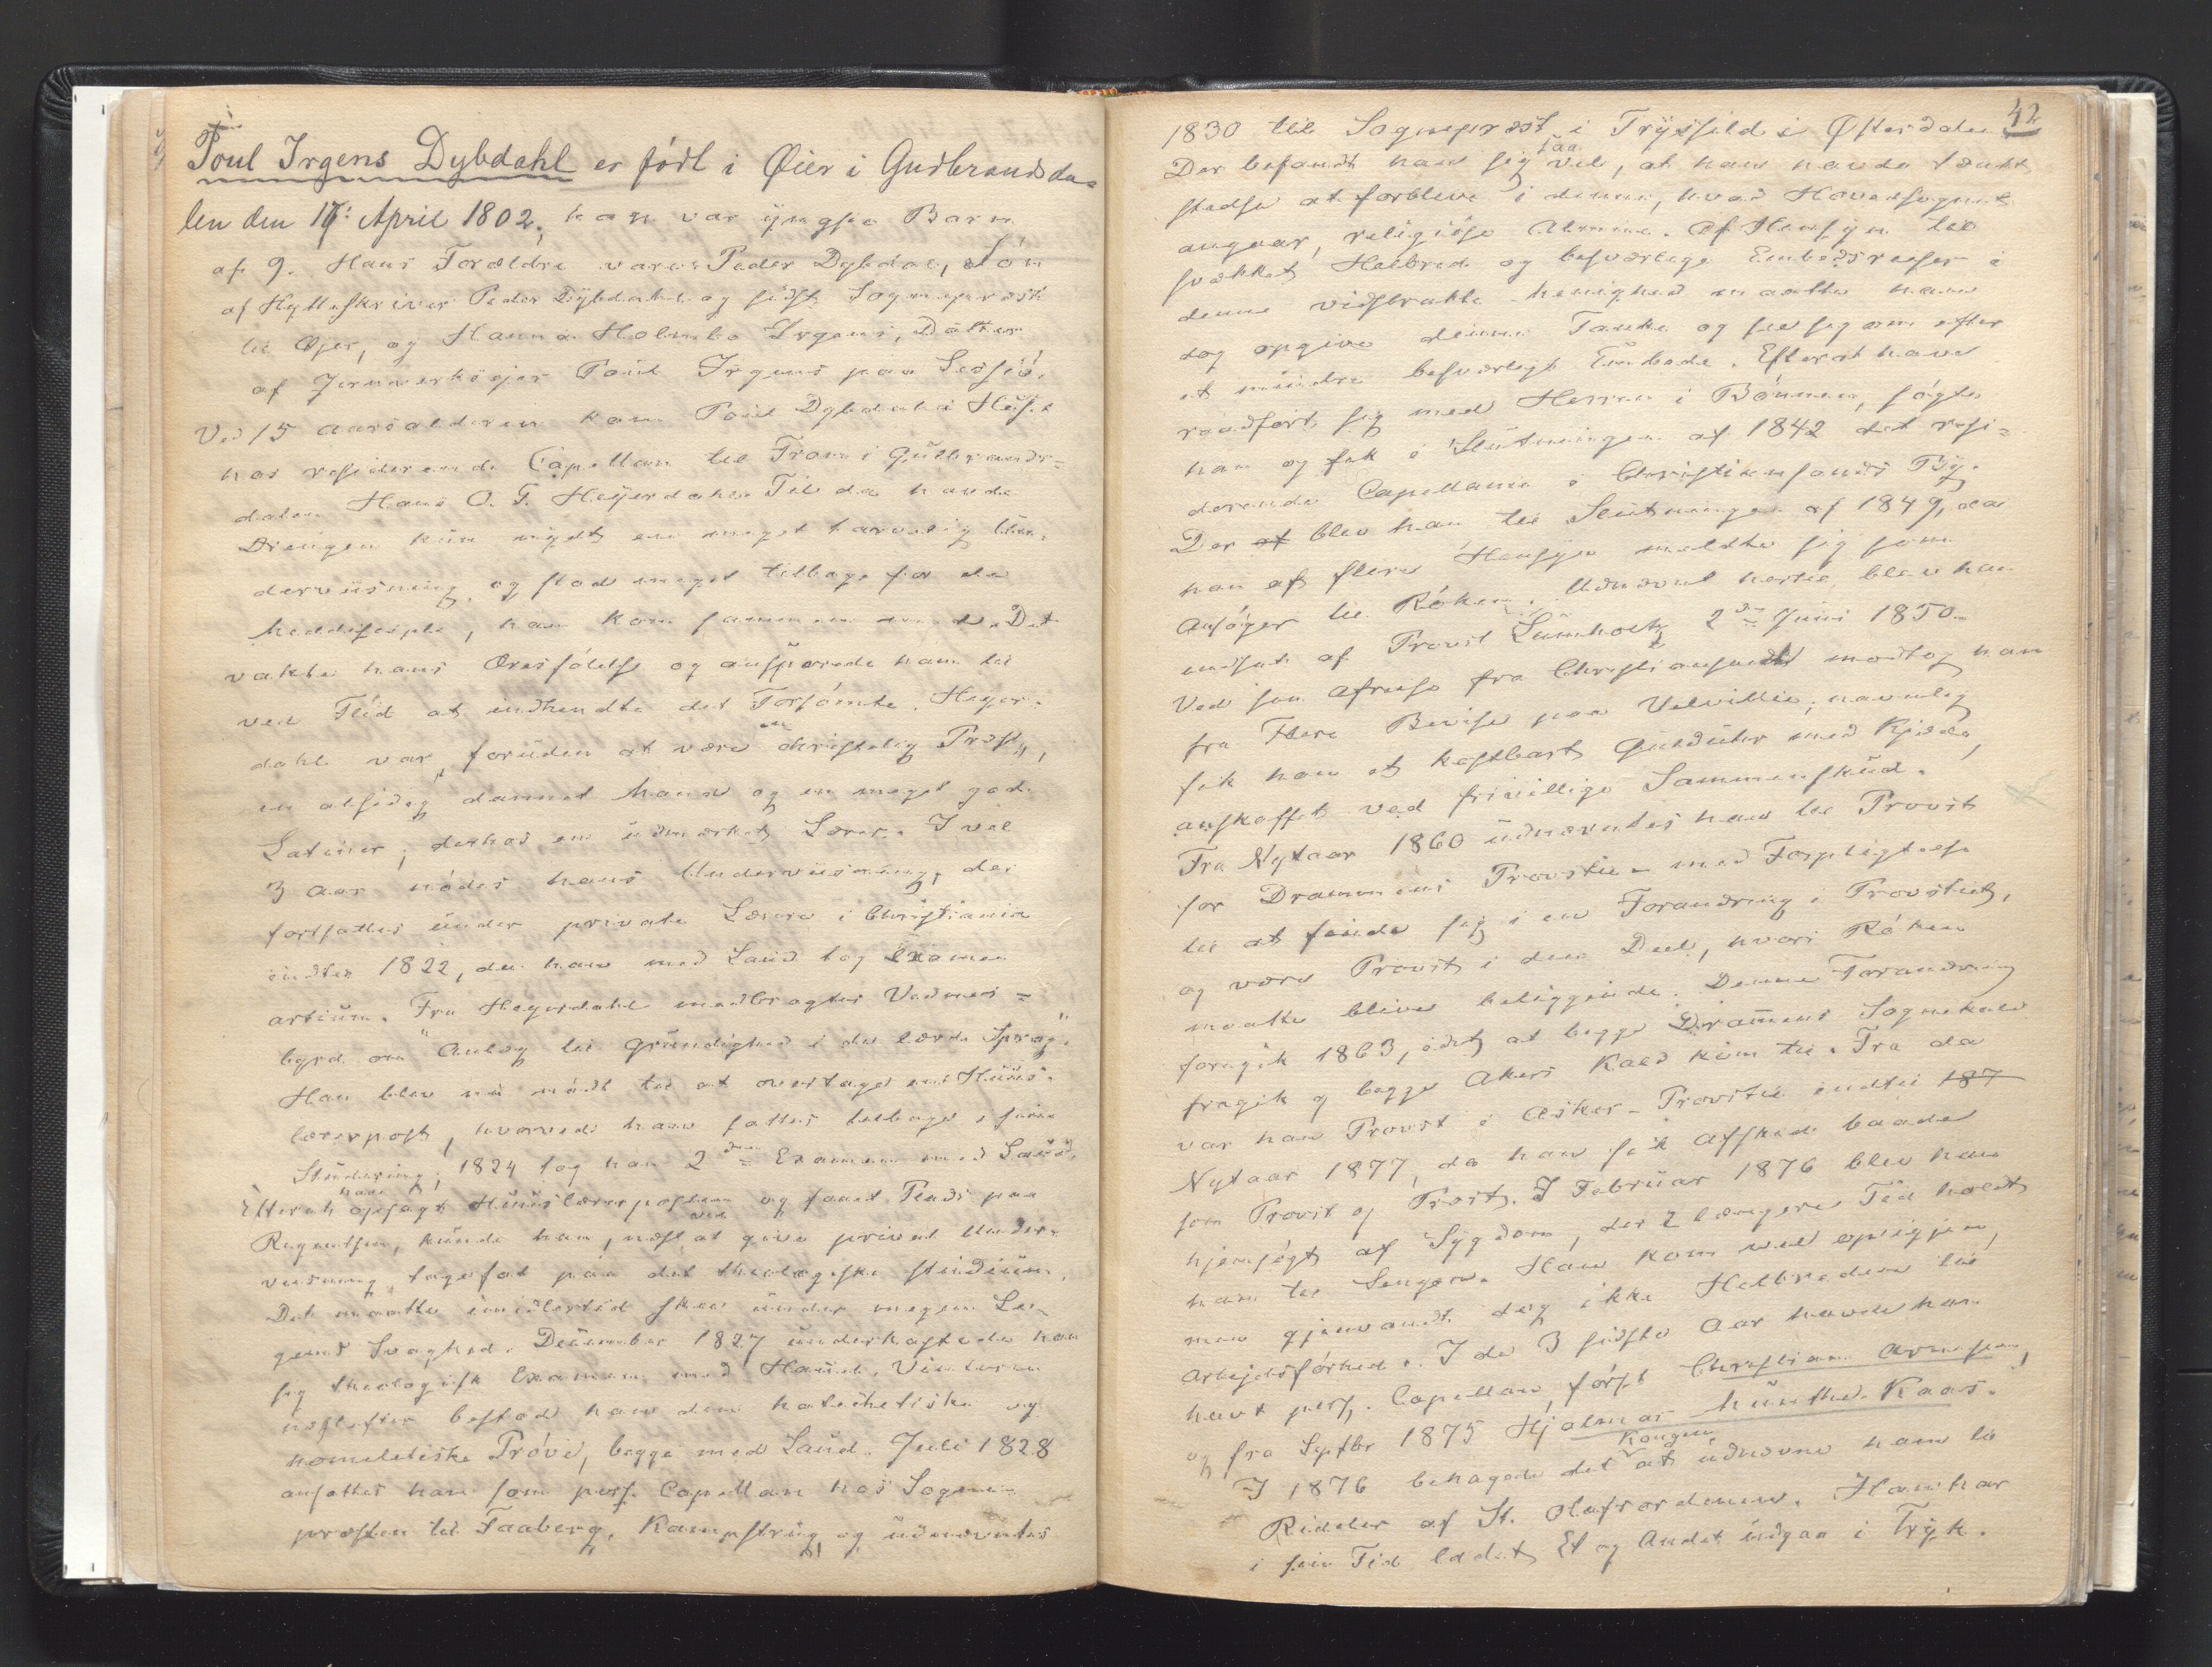 Poul Irgens Dybdahl er født i Øier i Gudbrandsda-
len den 17: April 1802; han var yngste Barn
af 9. Hans Forældre vare: Peder Dybdal, Søn
af Hytteskriver Peder Dybdahl og sidst Sognepræst
til Øjer, og Hanna Holmbo Irgens, Datter
af Jernverksejer Poul Irgens paa Lessø.
Ved 15 Aarsalderen kom Poul Dybdahl i Huset
hos residerende Capellan til Fron i Gulbrands-
dalen Hans O. F. Heyerdahl. Til da havde
Drengen kun nydt en meget tarvelig Un-
derviisning, og stod meget tilbage for de
Meddisciple, han kom sammen med. Det
vakte hans Æresfølelse og ansporede ham til
ved Flid at indhendte det Forsømte. Heyer-
dahl var, foruden at være en christelig Præst,
en alsidig dannet Mand og en meget god
Latiner; derhos en udmærket Lærer. I vel
3 Aar nødes hans Underviisning, der
fortsattes under private Lærere i Christiania
indtil 1822, da han med Laud tog Examen
artium. Fra Heyerdahl medbragtes Vidnes-
byrd om "Anlæg til Grundighed i de lærde Sprog".
Han blev nu nødt til at overtage en Huus-
lærerpost, hvorved han sattes tilbage i sine
Studering; 1824 tog han 2den Examen med Laud.
Efterat have opsagt Huuslærerposten og faaet Plads paa
Regentsen, kunde han, næst ved at give privat Under-
viisning, tage fat paa det theologiske Studium.
Det maatte imidlertid skee under megen Le-
gems Svaghed. December 1827 underkastede han
sig theologisk Examen med Haud. Vinteren
næstefter bestod han den katechetiske og
homeletiske Prøve, begge med Laud. Juli 1828
ansattes han som pers. Capellan hos Sogne-
præsten til Faaberg, Kampstrug, og udnævntes
42
1830 til Sognepræst i Trysild i Østerdalen.
Der befandt han sig saa vel, at han havde tænkt
stedse at forblive i denne, hvad Hovedsognet
angaar, religiøse Almue. Af Hensyn til
svækket Helbred og besværlige Embedsreiser i
denne vidstrakte Menighed maatte han
dog opgive denne Tanke og see sig om efter
et mindre besværligt Embede. Efterat have
raadført sig med Herren i Bønnen, søgte
han og fik i Slutningen af 1842 det resi-
derende Capellanie i Christiansands By.
Der blev han til Slutningen af 1849, da
han af flere Hensyn meldte sig som
Ansøger til Røken. Udnævnt hertil blev han
indsat af Provst Lumholtz 2den Juni 1850.
Ved sin Afreise fra Christiansand modtog han
fra Flere Beviser paa Velvillie, navnlig
fik han et kostbart Gulduhr med Kjæde,
anskaffet ved frivillige Sammenskud.
Fra Nytaar 1860 udnævntes han til Provst
for Drammens Provstie med Forpligtelse
til at finde sig i en Forandring i Provstiet,
og være Provst i den Deel, hvori Røken
maatte blive beliggende. Denne Forandring
foregik 1863, idet at begge Drammens Sognekald
fragik og begge Akers Kald kom til. Fra da
var han Provst i Asker-Provstie indtil 187
Nytaar 1877, da han fik Afsked baade
som Provst og Præst. I Februar 1876 blev han
hjemsøgt af Sygdom, der i længere Tid holdt
ham til Sengen. Han kom vel op igjen,
men gjenvandt dog ikke Helbreden til
Arbejdsførhed. I de 3 sidste Aar havde han
havt pers. Capellan, først Christian Arnesen,
og fra Septbr 1875 Hjalmar Munthe-Kaas.
I 1876 behagede det Kongen at udnævne ham til
Ridder af St. Olafsordenen. Han har
i sin Tid ladet Et og Andet udgaa i Tryk.